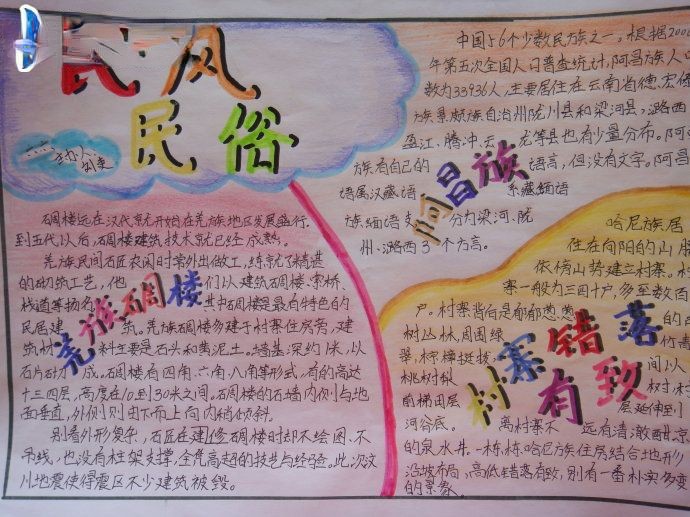 民风
民俗
主办人:
碉楼远在汉代就开始在羌族地区发展盛行.
到五代以后,碉楼建筑技术就已经成熟.
羌族民间石匠农闲时常外出做工,练就了精湛
的砌筑工艺,他们以建筑碉楼、索桥、
栈道等扬名其中碉楼是最有特色的
民居建筑。羌族碉楼多建于村寨住房旁,建
筑材料主要是石头和黄泥土。墙基深约1米,以
石片砌成。碉楼有四角、六角、八角等形式,有的高达
十三四层,高度在10到30米之间。碉楼的石墙内侧与地
面垂直,外侧则由下而上向内稍倾斜。
别看外形复杂,石匠在建修碉楼时却不绘图、不
吊线,也没有柱架支撑,全凭高超的技艺与经验。此次汶
川地震使得震区不少建筑被毁。
羌族碉楼
中国56个少数民族之一。根据200
年第五次全国人口普查统计,阿昌族人口
数为33936人,主要居住在云南省德宏傣
族景颇族自治州陇川县和梁河县,潞西
盈江、腾冲、云龙等县也有少量分布。阿
族有自己的语言,但没有文字。阿昌
语属汉藏语系藏缅语
族缅语支,分为梁河、陇
州、潞西3个方言。
阿昌族
哈尼族居
住在向阳的山腰
依傍山势建立村寨。村
寨一般为三四十户,多至数百
户。村寨背后是郁郁葱葱的
树丛林,周围绿竹青
翠,棕樟挺拔,间以
桃树梨树,村
前梯田层层延伸到
河谷底。离村寨不远有清澈甘凉
的泉水井。一栋栋哈尼族住房结合地形
沿坡布局,高低错落有致,别有一番朴实多变
的景象。
村寨错落
有致